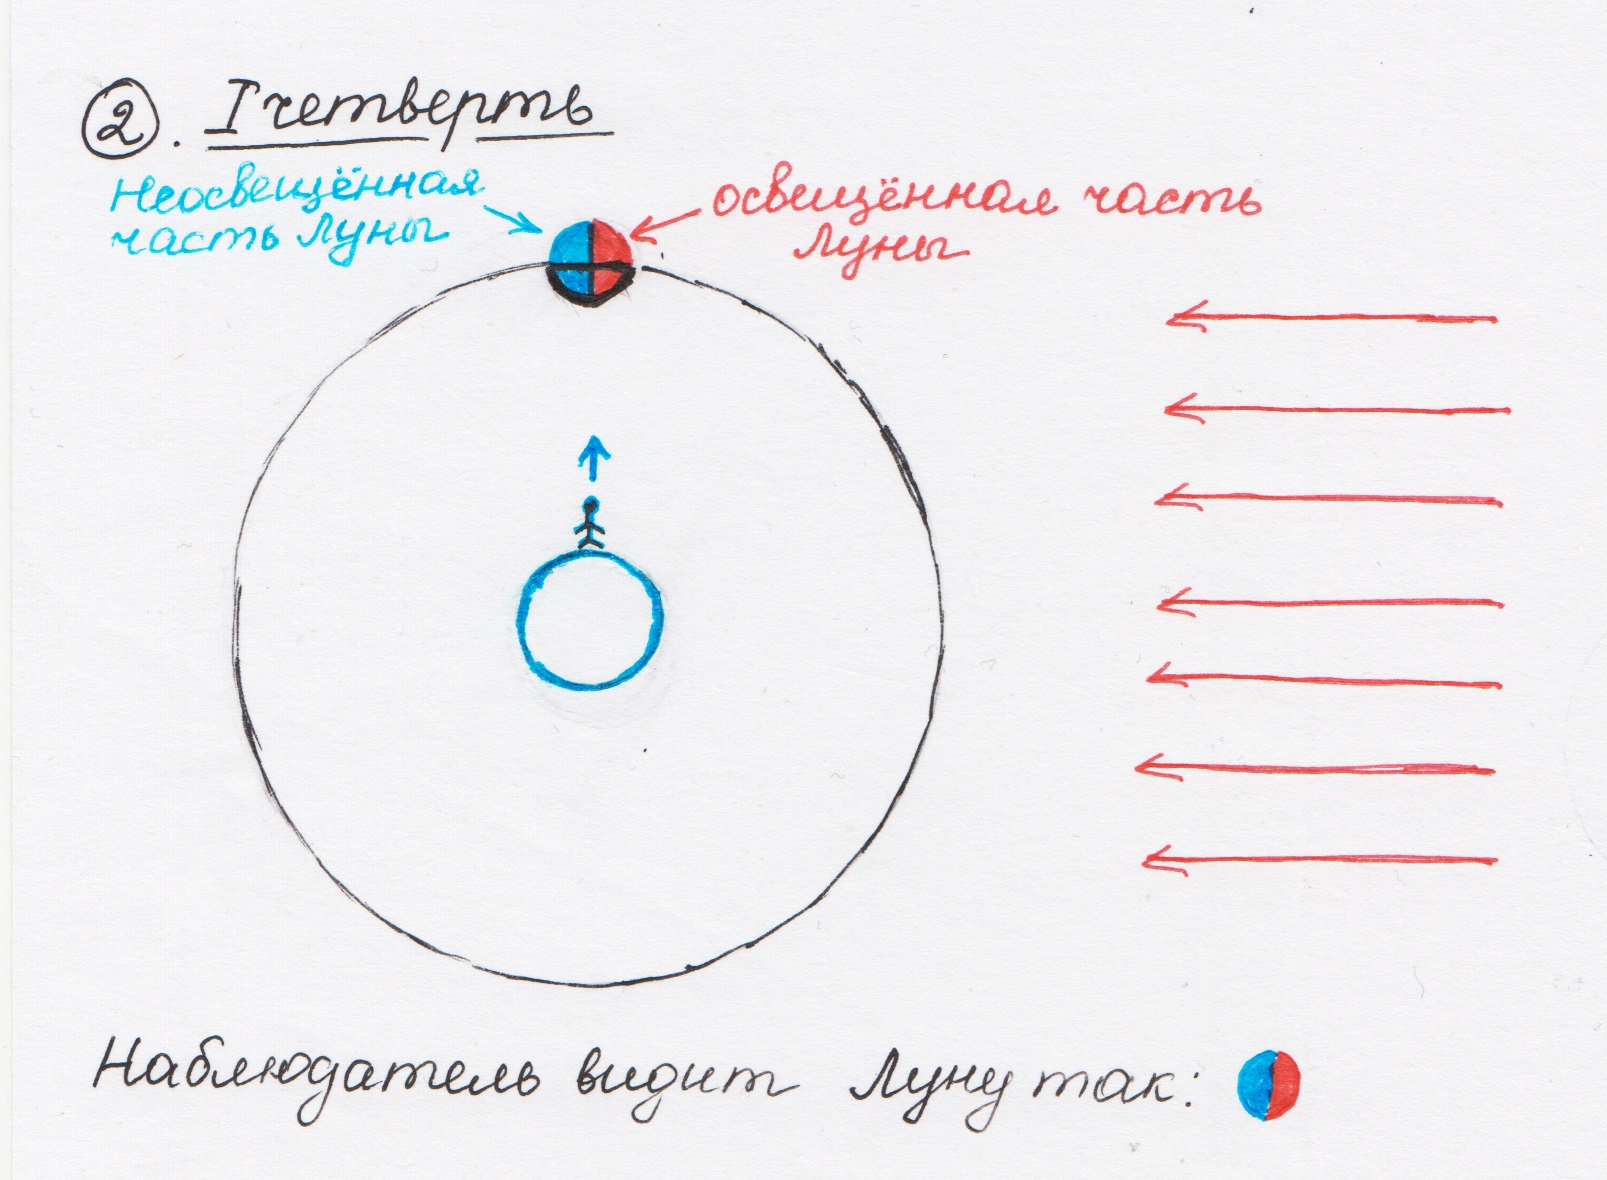 2. I четверть
Неосвещённая
часть Луны
освещённая часть
Луны
Наблюдатель видит Луну так: